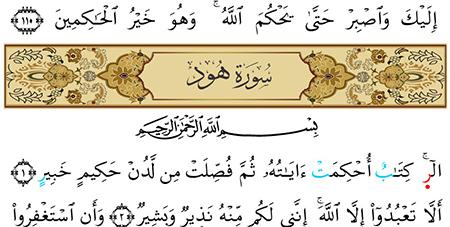 إِلَيْكَ وَٱصْبِرْ حَتَّىٰ يَحْكُمَ ٱللَّهُ ۚ وَهُوَ خَيْرُ ٱلْحَٰكِمِينَ ١١٥
سُورَةُ هُود
بِسْمِ ٱللَّهِ ٱلرَّحْمَٰنِ ٱلرَّحِيمِ
الٓر ۚ كِتَٰبٌ أُحْكِمَتْ ءَايَٰتُهُۥ ثُمَّ فُصِّلَتْ مِن لَّدُنْ حَكِيمٍ خَبِيرٍ ١
أَلَّا تَعْبُدُوٓا۟ إِلَّا ٱللَّهَ ۚ إِنَّنِى لَكُم مِّنْهُ نَذِيرٌ وَبَشِيرٌ ٢ وَأَنِ ٱسْتَغْفِرُوا۟